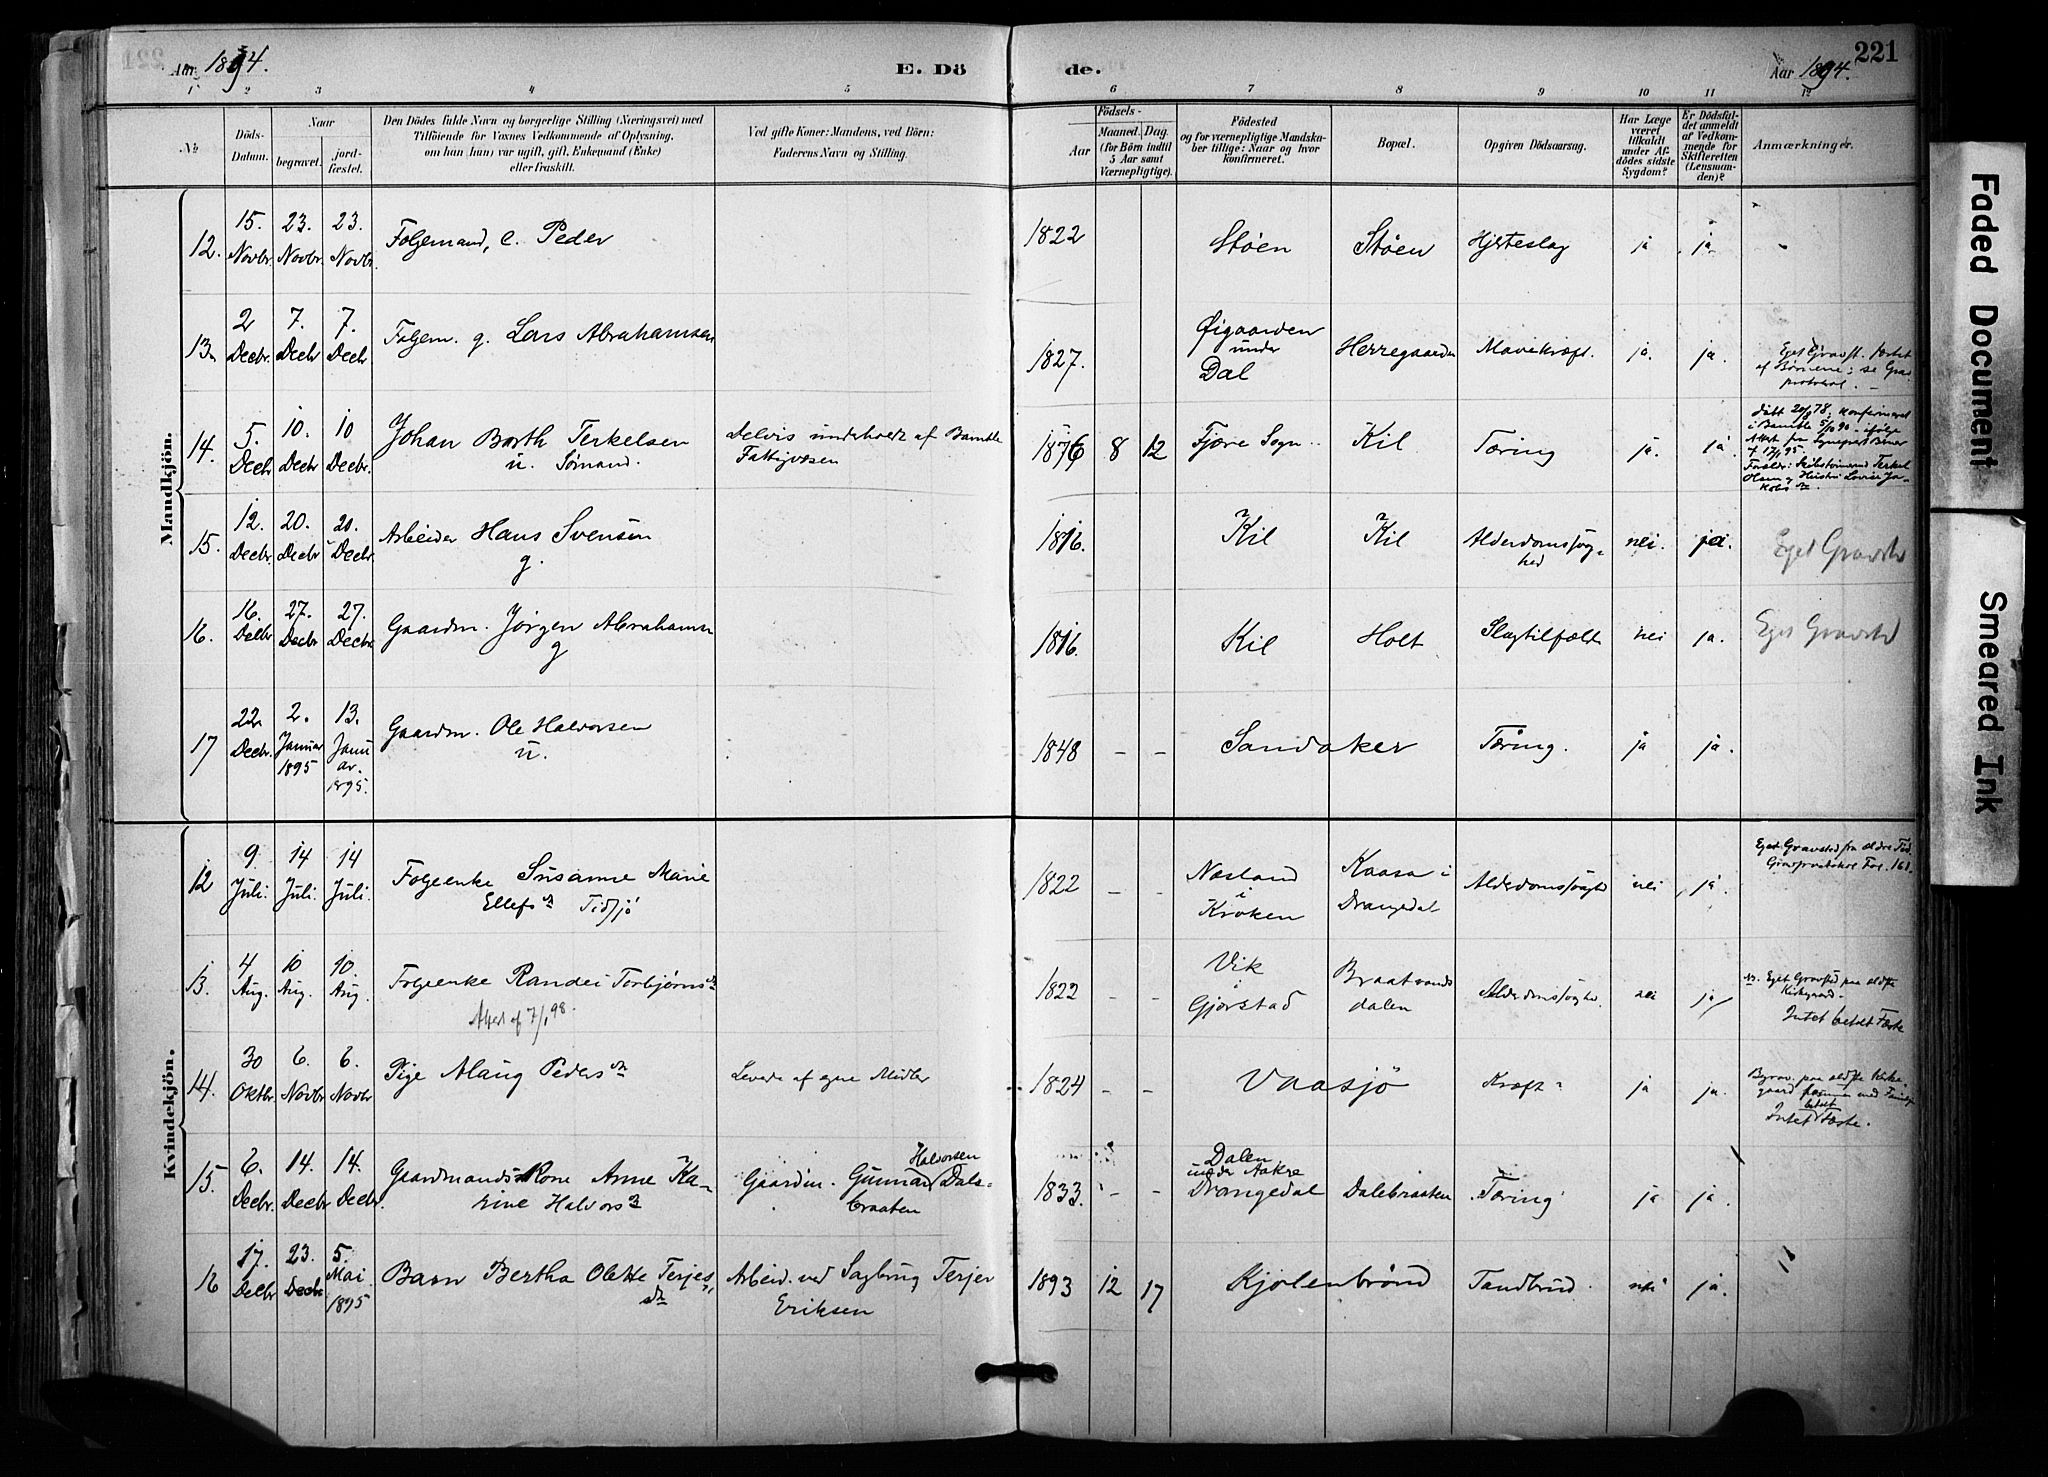 Aar 1894.
E. Dö
de.
Aar 1894.
221
1 2 3 4 5 6 7 8 9 10 11 12
No.
Döds-Datum.
Naar
begravet.
jord-fæstet.
Den Dödes fulde Navn og borgerlige Stilling (Næringsvei) med
Tilföiende for Voxnes Vedkommende af Oplysning,
om han (hun) var ugift, gift, Enkemand (Enke)
eller fraskilt.
Ved gifte Koner: Mandens, ved Börn:
Faderens Navn og Stilling.
Födsels-
Aar
Maaned. (for Börn indtil 5 Aar samt Værnepligtige).
Dag.
Födested
og for værnepligtige Mandskaber tillige: Naar og hvor konfirmeret.
Bopæl.
Opgiven Dödsaarsag.
Har Læge været tilkaldt under Afdödes sidste Sygdom?
Er Dödsfaldet anmeldt af Vedkommende for Skifteretten (Lensmanden)?
Anmærkninger.
Mandkjön.
12. 15. Novbr. 23. Novbr. 23. Novbr. Folgemand, e. Peder 1822 Støen Støen Hjerteslag ja ja.
13. 2 Decbr. 7. Decbr 7. Decbr. Folgem. g. Lars Abrahamsen 1827. Øigaarden under Dal Herregaarden Mavekræft. ja. ja. Eget Gravst.
af Børnene; se Grav
protokol.
14. 5. Decbr 10. Decbr. 10 Decbr. Johan Barth Terkelsen
u. Sømand.
Delvis underholdt af Bamble
Fattigvæsen
1876 8 12 Fjære Sogn Kil Tæring ja. ja. døbt 20/8 78; Konfirmeret
i Bamble 5/10 90 ifølge
Attest fra Sognepræst
af 17/1 95.
Terkel
Hustru Lovise
15. 12. Decbr. 20. Decbr 20. Decbr. Arbeider Hans Svensen
g.
1816. Kil Kil Alderdomssvaghed nei. ja. Eget Gravsted
16. 16. Decbr 27. Decbr 27. Decbr. Gaardm. Jørgen Abrahamsen
g
1816. Kil Holt Slagtilfælde nei ja. Eget Gravsted
17 22 Decbr. 2. Januar 1895 13. Januar. 1895. Gaardm. Ole Halvorsen
u.
1848 – – Sandaker Tæring. ja ja.
Kvindekjön.
12 9. Juli. 14 Juli. 14 Juli. Folgeenke Susanne Marie
Ellefsdr Tidsjø
1822 – – Næsland i Kroken Kaasa i Drangedal Alderdomssvaghed nei ja. Eget Gravsted fra ældre Tid
Gravprotokol Fol. 161.
13. 4 Aug. 10 Aug. 10. Aug. Folgeenke Randei Torbjørnsdr
Attest af 7/1 98.
1822 – – Vik i Gjerstad Braatvandsdalen Alderdomssvaghed. nei ja Eget Gravsted paa ældste
Kirkegaard.
Intet betalt Fæste
14. 30 Oktbr. 6. Novbr 6. Novbr Pige Alaug Pedersdr Levede af egne Midler 1824 – – Vaasjø Kræft ja ja. Begrav. paa ældste Kirkegaard sammen med Familie
Intet betalt Fæste.
15. 6. Decbr. 14. Decbr 14. Decbr. Gaardmandskone Anne Ka-
rine Halvorsdr
Gaardm. Gunnar Halvorsen Dale-
braaten
1833. – – Dalen under Aakre Drangedal Dalebraaten Tæring ja ja.
16 17. Decbr 23. Decbr 5. Mai 1895 Barn Bertha Olette Terjes-
dr
Arbeid. ved Sagbrug Terjer
Eriksen
1893 12 17 Kjølenbrønd Tandbrud. nei ja.
Faded Document
Smeared Ink